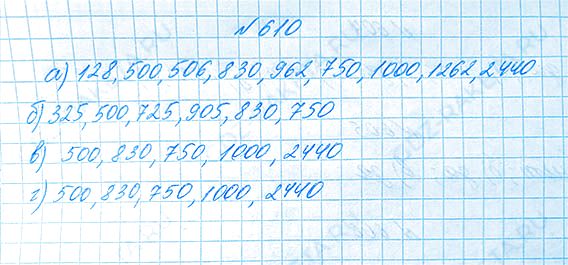 №610
а) 128, 500, 506, 830, 962, 750, 1000, 1262, 2440
б) 325, 500, 725, 905, 830, 750
в) 500, 830, 750, 1000, 2440
г) 500, 830, 750, 1000, 2440